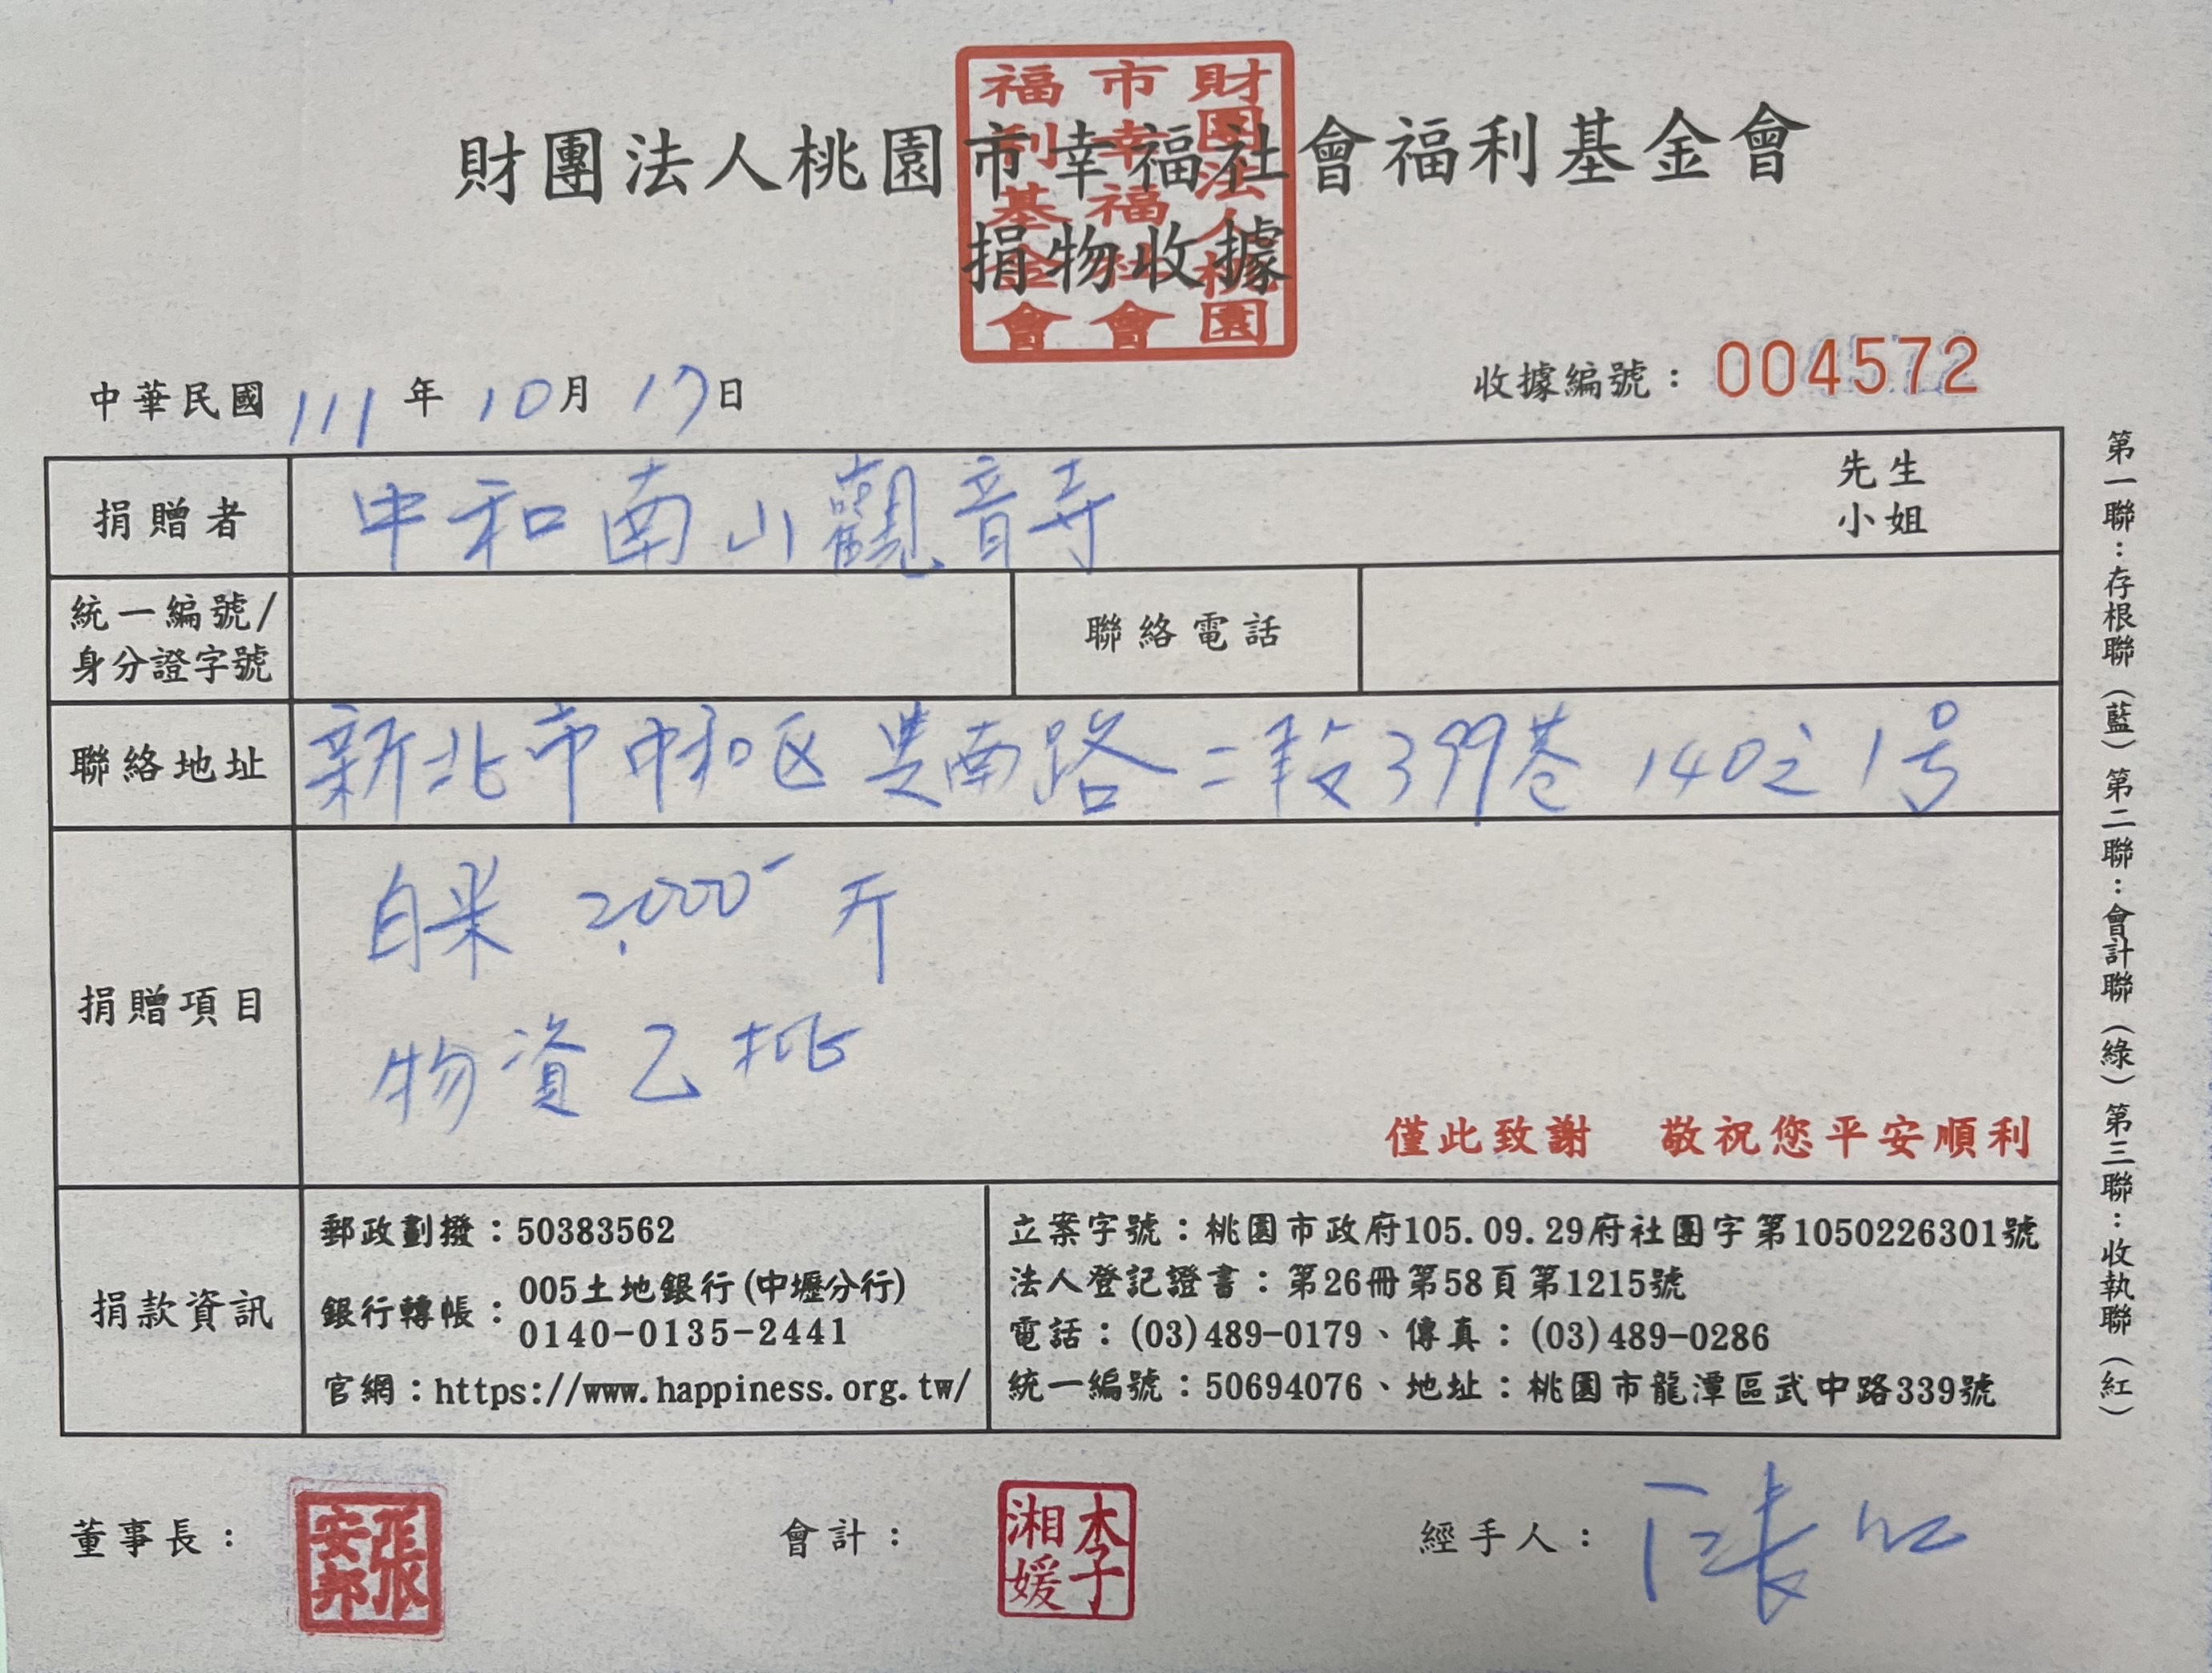 財團法人桃園市幸福社會福利基金會
捐物收據
財團法人桃園
市幸福社會
福利基金會
中華民國111年10月17日
收據編號：004572
捐贈者 中和南山觀音寺 先生
小姐
統一編號/
身分證字號
聯絡電話
聯絡地址 新北市中和区 南路二段399巷140之1号
捐贈項目
白米 2,000- 斤
物資乙批
僅此致謝 敬祝您平安順利
捐款資訊
郵政劃撥：50383562
銀行轉帳：005土地銀行(中壢分行)
0140-0135-2441
官網：https://www.happiness.org.tw/
立案字號：桃園市政府105.09.29府社團字第1050226301號
法人登記證書：第26冊第58頁第1215號
電話：(03)489-0179、傳真：(03)489-0286
統一編號：50694076、地址：桃園市龍潭區武中路339號
第一聯：存根聯（藍）第二聯：會計聯（綠）第三聯：收執聯（紅）
董事長：
張安邦
會計：
李湘媛
經手人：